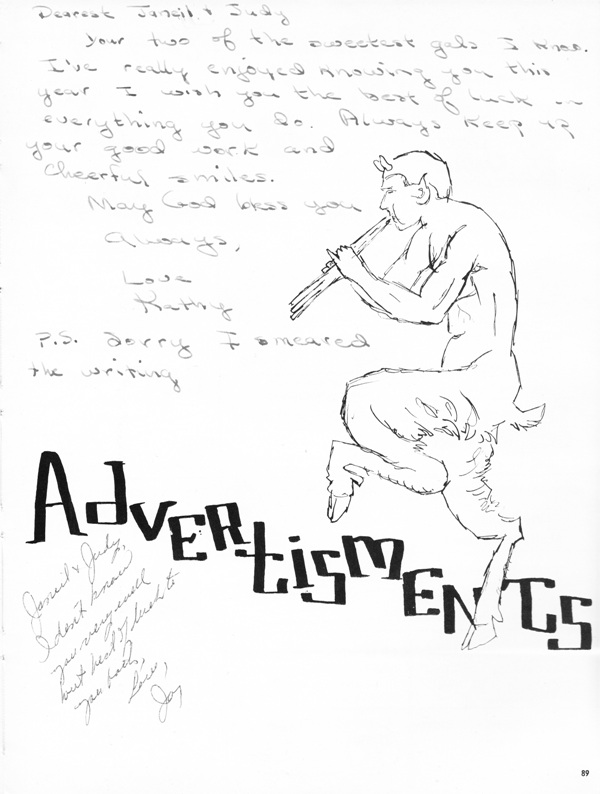 Dearest Janeil & Judy
Your two of the sweetest gals I know.
I've really enjoyed knowing you this
year I wish you the best of luck in
everything you do. Always keep up
your good work and
cheerful smiles.
May God bless you
always,
Love
Kathy
P.S. Sorry I smeared
the writing
AdVERtismENtS
Janeil & Judy,
I don't know
you very well
but best of luck to
you both,
Love,
Joy
89